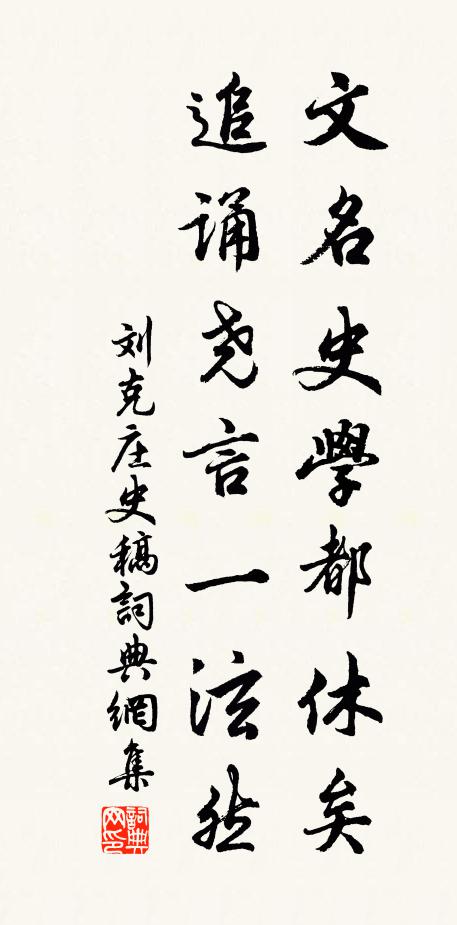 文名史學都休矣
追诵尧言一泫然
刘克庄史稿詞典網集
詞典网印